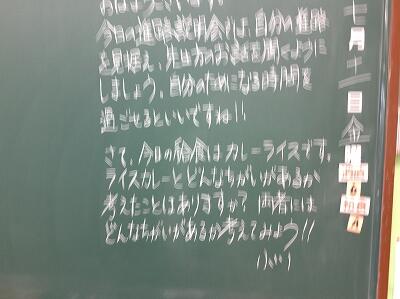 おはようございます。
今日の進路説明会では、自分の進路
を見据え、先生方のお話を聞くように
しましょう。自分のためになる時間を
過ごせるといいですね!!
さて、今日の給食はカレーライスです。
ライスカレーとどんなちがいがあるか
考えたことはありますか?両者には
どんなちがいがあるか考えてみよう!!
七月二日金